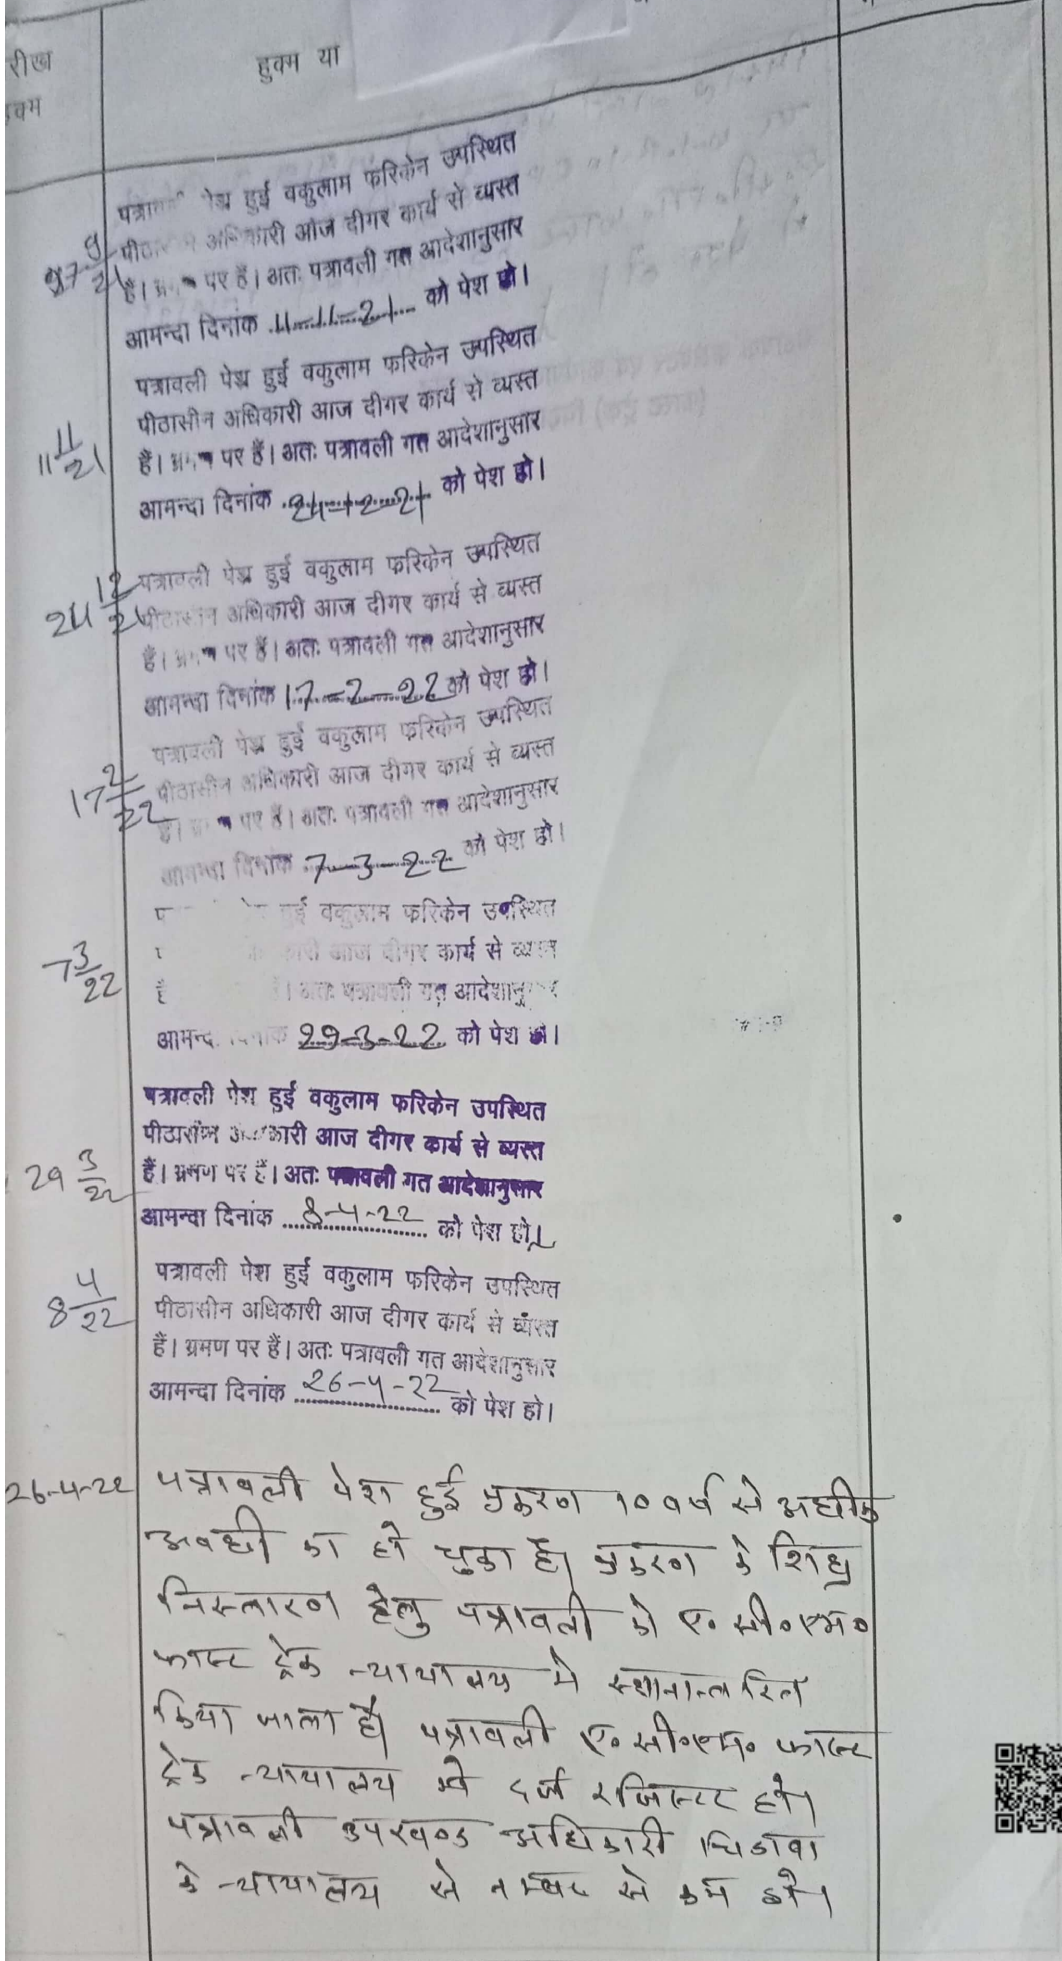 रीख
हुक्म या
क्म
पेश हुई वकुलाम फरिकेन उपस्थित
आज दीगर कार्य से व्यस्त
27 9/21
हैं। पर हैं। अतः पत्रावली गत आदेशानुसार
आमन्दा दिनांक 11-11-21 को पेश हो।
पत्रावली पेश हुई वकुलाम फरिकेन उपस्थित
पीठासीन अधिकारी आज दीगर कार्य से व्यस्त
11 11/21
हैं। पर हैं। अतः पत्रावली गत आदेशानुसार
आमन्दा दिनांक 24-12-21 को पेश हो।
24 12/21
पत्रावली पेश हुई वकुलाम फरिकेन उपस्थित
पीठासीन अधिकारी आज दीगर कार्य से व्यस्त
हैं। पर हैं। अतः पत्रावली गत आदेशानुसार
आमन्दा दिनांक 17-2-22 को पेश हो।
पत्रावली पेश हुई वकुलाम फरिकेन उपस्थित
17 2/22
पीठासीन अधिकारी आज दीगर कार्य से व्यस्त
हैं। पर हैं। अतः पत्रावली गत आदेशानुसार
आमन्दा दिनांक 7-3-22 को पेश हो।
हुई वकुलाम फरिकेन उपस्थित
7 3/22
आज दीगर कार्य से व्यस्त
अतः पत्रावली गत
29-3-22 को पेश हो।
पत्रावली पेश हुई वकुलाम फरिकेन उपस्थित
पीठासीन आज दीगर कार्य से व्यस्त
29 3/22
हैं। भ्रमण पर हैं। अतः पत्रावली गत आदेशानुसार
आमन्दा दिनांक 8-4-22 को पेश हो।
पत्रावली पेश हुई वकुलाम फरिकेन उपस्थित
8 4/22
पीठासीन अधिकारी आज दीगर कार्य से व्यस्त
हैं। भ्रमण पर हैं। अतः पत्रावली गत आदेशानुसार
आमन्दा दिनांक 26-4-22 को पेश हो।
26-4-22 पत्रावली पेश हुई प्रकरण 10 वर्ष से अधीक
अवधी का हो चुका है। प्रकरण के शिघ्र
निस्तारण हेतु पत्रावली को ए॰ सी॰ एम॰
फास्ट ट्रेक न्यायालय मे स्थानान्तरित
किया जाता है। पत्रावली ए॰ सी॰ एम॰ फास्ट
ट्रेक न्यायालय मे दर्ज रजिस्टर हो।
पत्रावली उपखण्ड अधिकारी चिडावा
के न्यायालय से नम्बर से कम हो।